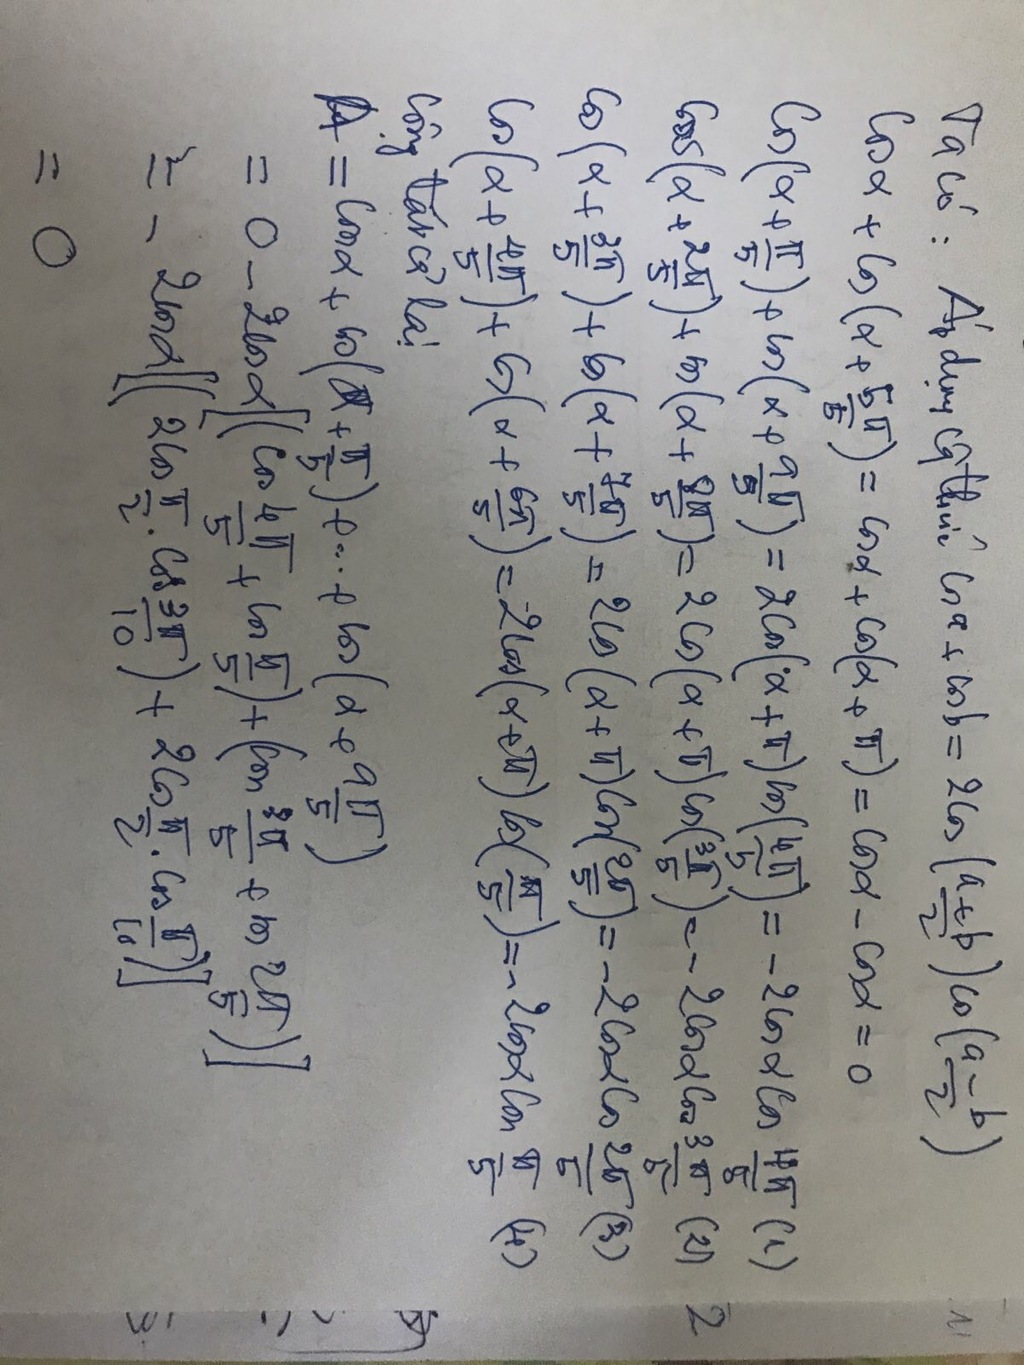 Ta có: Áp dụng cg thức cosa + cosb = 2cos(a+b/2)cos(a-b/2)
cosα + cos(α + 5π/5) = cosα + cos(α + π) = cosα - cosα = 0
cos(α + π/5) + cos(α + 9π/5) = 2cos(α + π)cos(4π/5) = -2cosαcos 4π/5 (1)
cos(α + 2π/5) + cos(α + 8π/5) = 2cos(α + π)cos(3π/5) = -2cosαcos 3π/5 (2)
cos(α + 3π/5) + cos(α + 7π/5) = 2cos(α + π)cos(2π/5) = -2cosαcos 2π/5 (3)
cos(α + 4π/5) + cos(α + 6π/5) = 2cos(α + π)cos(π/5) = -2cosαcos π/5 (4)
Cộng tất cả lại
A = cosα + cos(α + π/5) + ... + cos(α + 9π/5)
= 0 - 2cosα[(cos 4π/5 + cos π/5) + (cos 3π/5 + cos 2π/5)]
= - 2cosα[(2cos π/2 . cos 3π/10) + 2cos π/2 . cos π/10)]
= 0
2